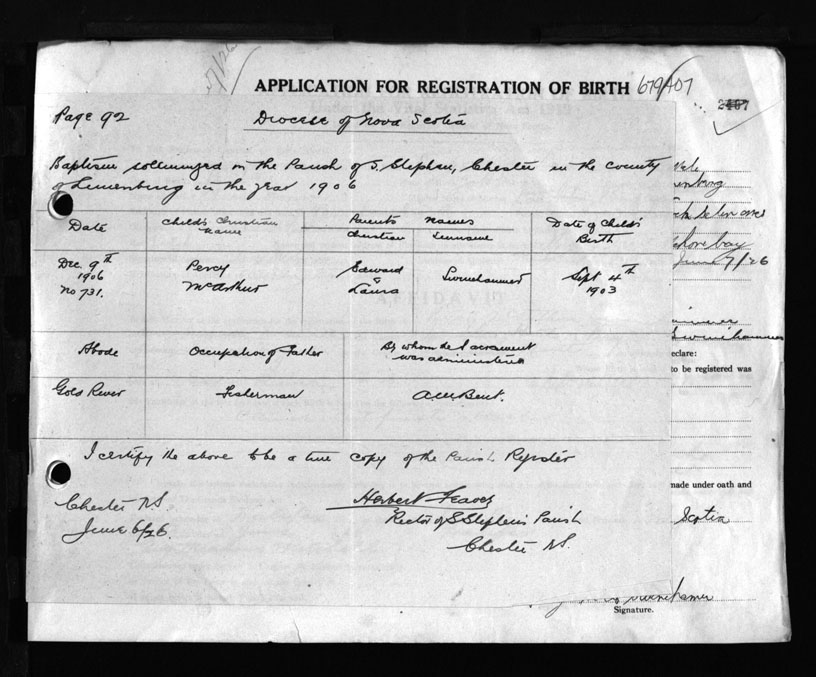 APPLICATION FOR REGISTRATION OF BIRTH 679407
2467
Page 92
Diocese of Nova Scotia
Baptism solemnized in the Parish of S. Stephen, Chester in the county
of Lunenburg in the year 1906
Date
Child's Christian Name
Parents Names
Christian
Surname
Date of Child's Birth
Dec. 9th
1906
No 731.
Percy
McArthur
Edward
&
Laura
Swinehammer
Sept 4th
1903
Abode
Occupation of Father
By whom the Sacrament
was administered
Gold River
Fisherman
I certify the above to be a true copy of the Parish Register
Chester NS
June 6/26.
Herbert
Rector of S Stephen's Parish
Chester N.S.
June 7/26
eclare:
to be registered was
nade under oath and
Scotia
Signature.